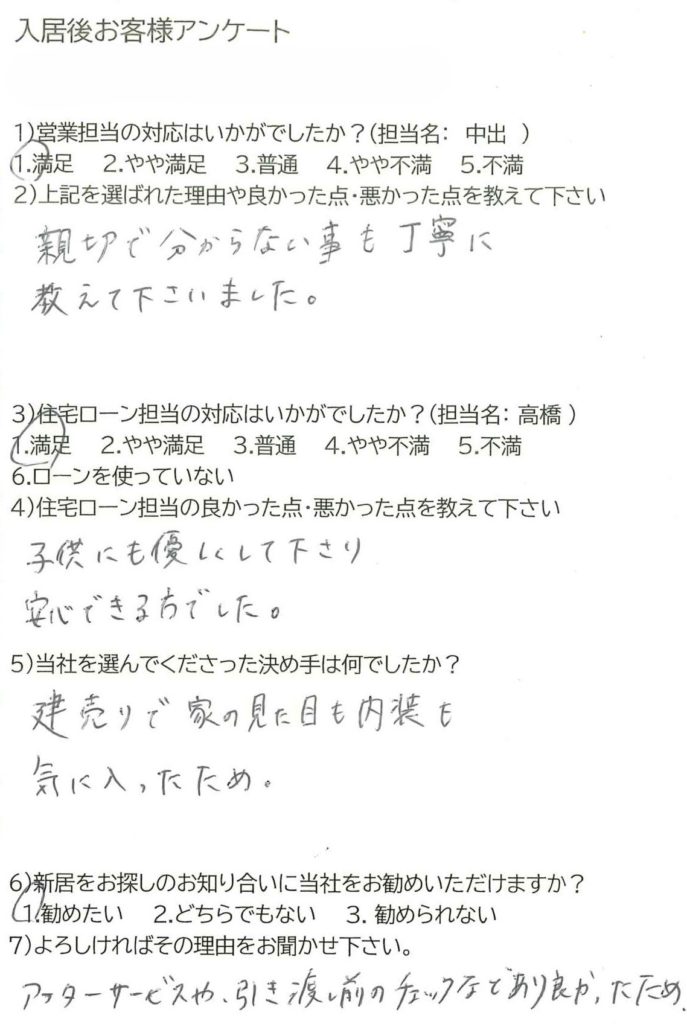 入居後お客様アンケート
1)営業担当の対応はいかがでしたか？(担当名： 中出 )
1.満足 2.やや満足 3.普通 4.やや不満 5.不満
2)上記を選ばれた理由や良かった点・悪かった点を教えて下さい
親切で分からない事も丁寧に
教えて下さいました。
3)住宅ローン担当の対応はいかがでしたか？(担当名： 高橋 )
1.満足 2.やや満足 3.普通 4.やや不満 5.不満
6.ローンを使っていない
4)住宅ローン担当の良かった点・悪かった点を教えて下さい
子供にも優しくして下さり
安心できる方でした。
5)当社を選んでくださった決め手は何でしたか？
建売りで家の見た目も内装も
気に入ったため。
6)新居をお探しのお知り合いに当社をお勧めいただけますか？
1.勧めたい 2.どちらでもない 3. 勧められない
7)よろしければその理由をお聞かせ下さい。
アフターサービスや、引き渡し前のチェックなどあり良かったため。